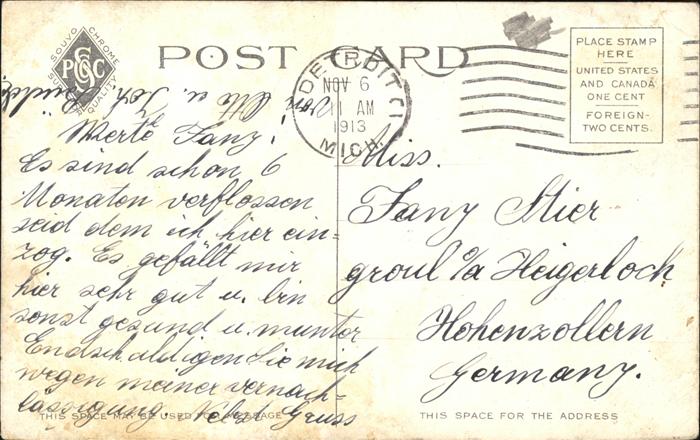 SOUVO CHROME
PCSC
QUALITY
POST CARD
DETROIT
NOV 6
11 AM
1913
MICH.
PLACE STAMP
HERE
UNITED STATES
AND CANADA
ONE CENT
FOREIGN-
TWO CENTS.
Werte Fany!
Es sind schon 6
Monaten verflossen
seid dem ich hier ein=
zog. Es gefällt mir
hier sehr gut u. bin
sonst gesund u. munter
Endschuldigen Sie mich
wegen meiner vernach-
lässigung. Gruss
Miss.
Fany Stier
groul %a Heigerloch
Hohenzollern
Germany.
THIS SPACE MAY BE USED FOR MESSAGE
THIS SPACE FOR THE ADDRESS